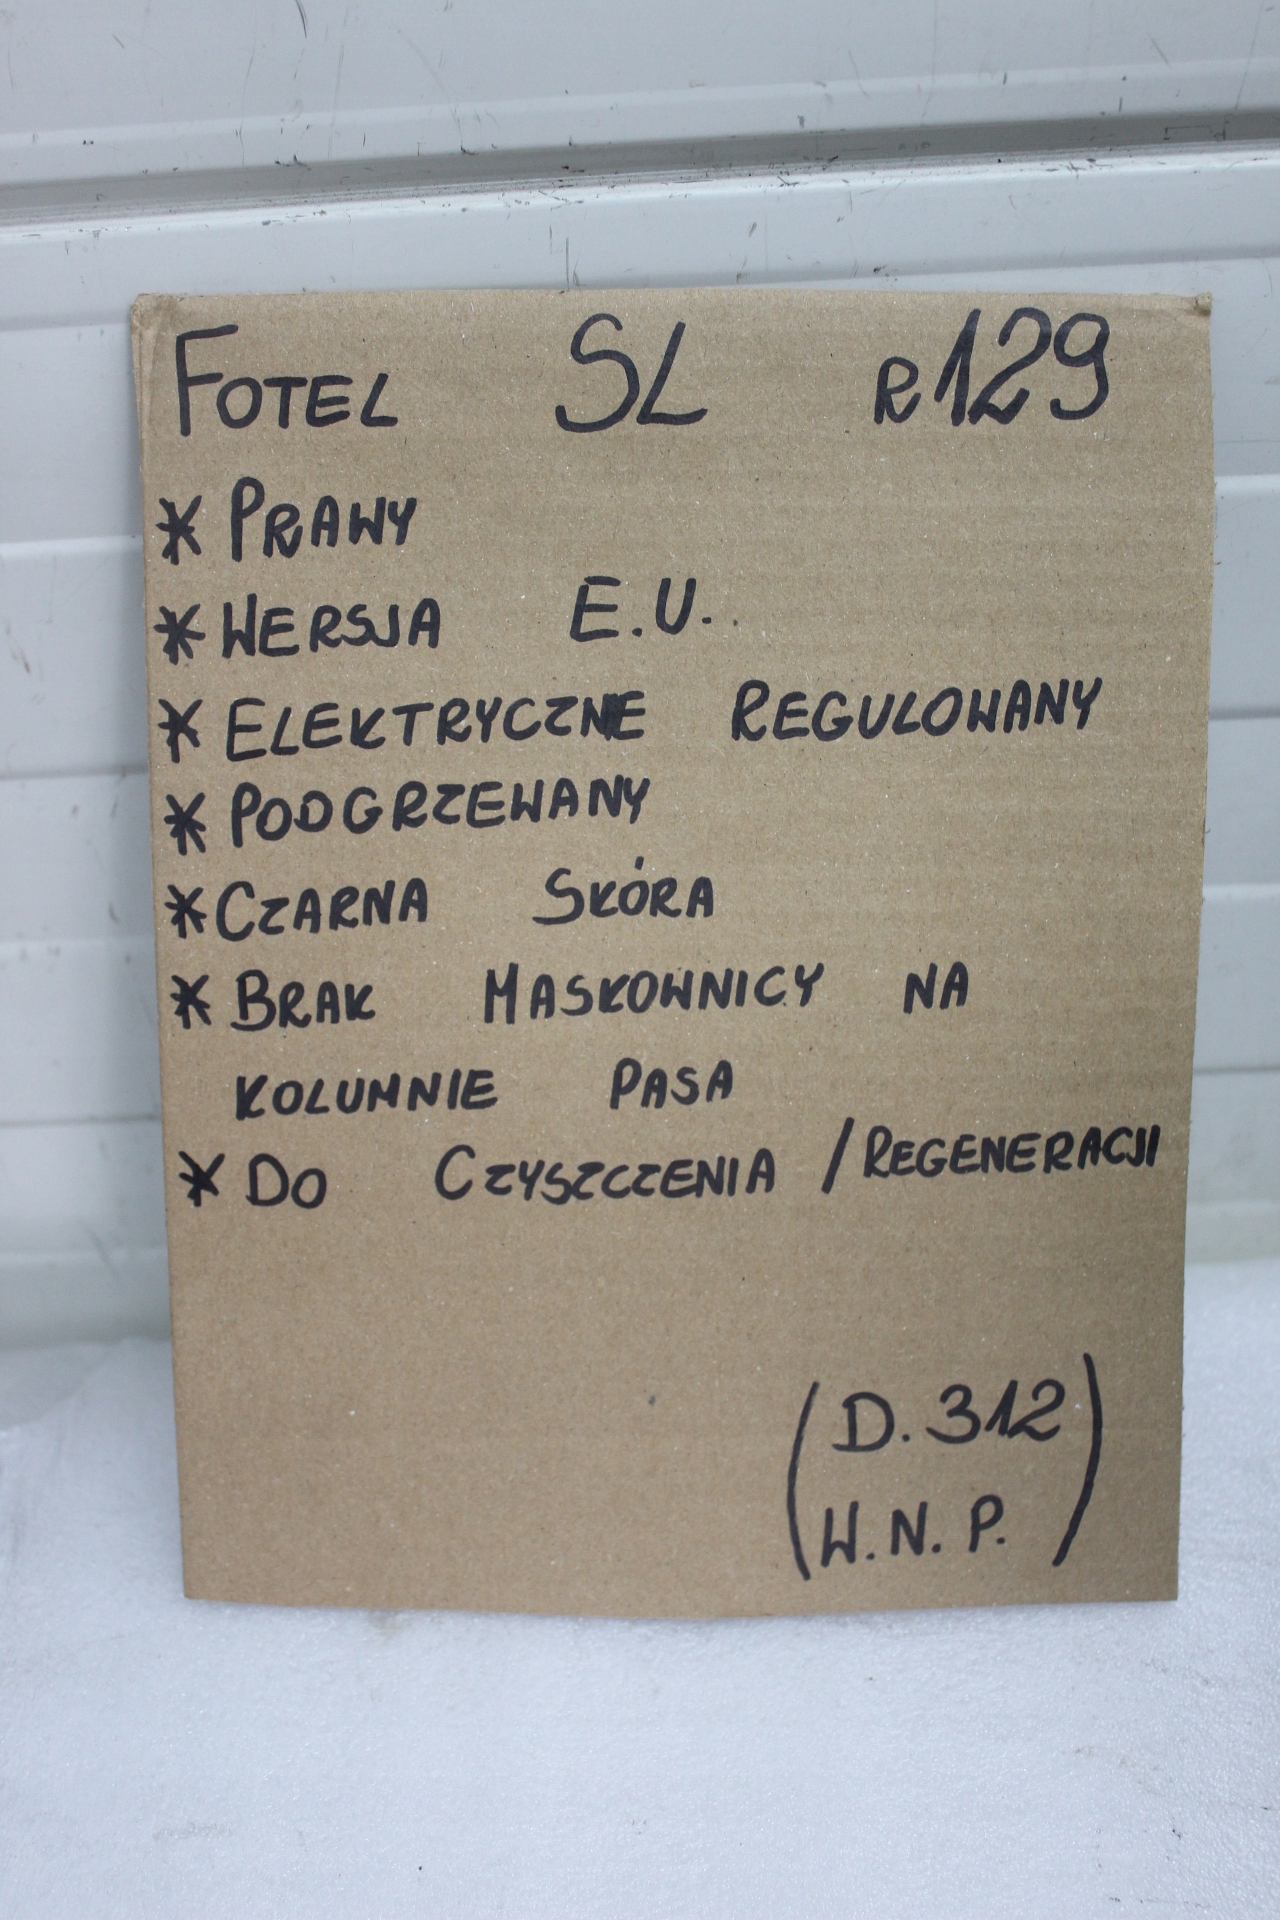 FOTEL SL R129
* PRAWY
* WERSJA E.U.
* ELEKTRYCZNE REGULOWANY
* PODGRZEWANY
* CZARNA SKÓRA
* BRAK MASKOWNICY NA
KOLUMNIE PASA
* DO CZYSZCZENIA / REGENERACJI
(D. 312
W. N. P.)